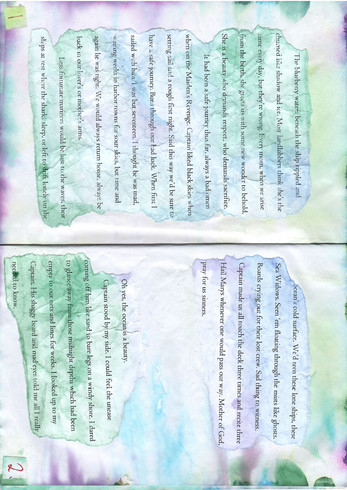 1
The blueberry waters beneath the ship rippled and
echoed like shadow and ice. Most landlubbers think she's the
same every day, but they're wrong. Every morn, when we arise
from the berth, she graces us with some new wonder to behold.
She is a beauty who demands respect, who demands sacrifice.
It had been a safe journey thus far, always a bad omen
when on the Maiden's Revenge. Captain liked black skies when
setting sail and a rough first night. Said this way we'd be sure to
have a safe journey. Burn through our bad luck. When first I
sailed with him, I was but seventeen. I thought he was mad,
waiting weeks in harbor towns for sour skies, but time and
again he was right. We would always return home, always be
back in our lover's or mother's arms.
Less fortunate mariners would be lost to the waves, their
ships at rest where the sharks sleep, or left errant, listless on the
ocean's cold surface. We'd seen these lone ships, these
Sea Widows. Seen 'em floating through the mists like ghosts.
Boards crying out for their lost crew. Sad thing to witness.
Captain made us all touch the deck three times and recite three
Hail Marys whenever one would pass our way. Mother of God,
pray for us sinners.
Oh yes, the ocean is a beauty.
Captain stood by my side. I could feel the unease
coming off him like sand to bare legs on a windy shore. I dared
to glance away from those midnight depths which had been
empty to our nets and lines for weeks. I looked up to my
Captain. His shaggy beard and mad eyes told me all I really
needed to know.
2